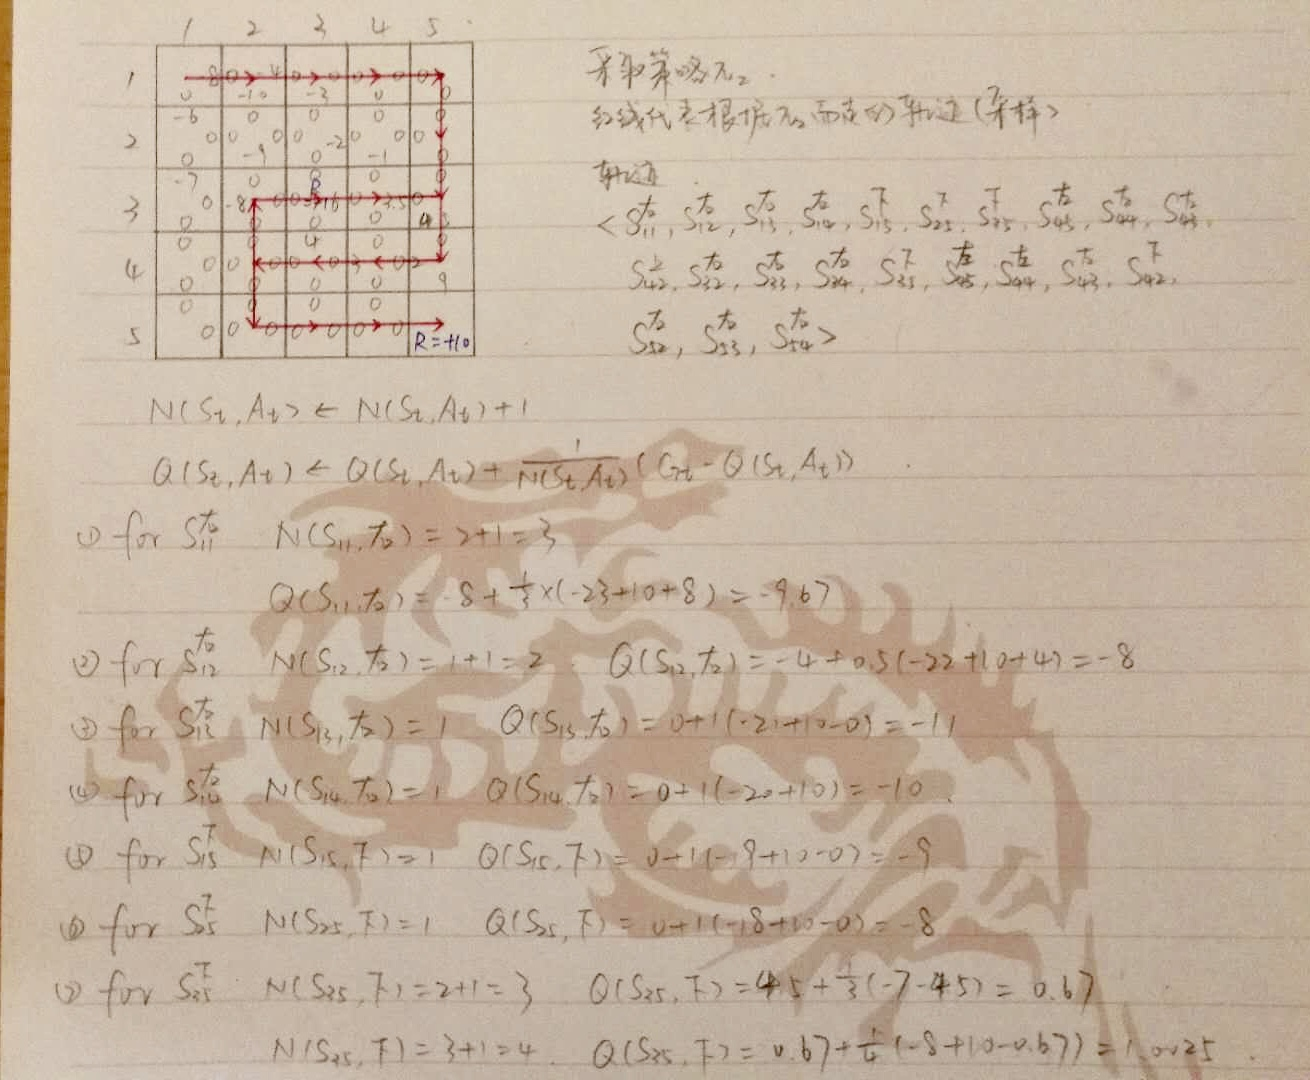 1 2 3 4 5
采取策略π₂.
红线代表根据π₂而走的轨迹(采样)
轨迹
1 -8 0 -4 0 0 0 0 0
0 -10 -3 0 0
-6 0 0 0 0
2 0 0 0 0 -2 0 0 0
0 -9 0 -1 0
-7 0 0 0
3 0 -8 0 0 R 0 3.5 0
0 0 0 0
0 4 0 0
4 0 0 0 0
0 0 0 0 9
0 0 0 0
5 0 0 0 0 0 0 R=+10
<S₁₁右, S₁₂右, S₁₃右, S₁₄右, S₁₅下, S₂₅下, S₃₅下, S₄₅右, S₄₄右, S₄₃右,
S₄₂上, S₃₂右, S₃₃右, S₃₄右, S₃₅下, S₄₅左, S₄₄左, S₄₃右, S₄₂下,
S₅₂右, S₅₃右, S₅₄右>
N(Sₜ,Aₜ) ← N(Sₜ,Aₜ)+1
Q(Sₜ,Aₜ) ← Q(Sₜ,Aₜ)+ 1/N(Sₜ,Aₜ) (Gₜ-Q(Sₜ,Aₜ))
① for S₁₁右 N(S₁₁,右)=2+1=3
Q(S₁₁,右)=-8+⅓×(-23+10+8)=-9.67
② for S₁₂右 N(S₁₂,右)=1+1=2 Q(S₁₂,右)=-4+0.5(-22+10+4)=-8
③ for S₁₃右 N(S₁₃,右)=1 Q(S₁₃,右)=0+1(-21+10-0)=-11
④ for S₁₄右 N(S₁₄,右)=1 Q(S₁₄,右)=0+1(-20+10)=-10.
⑤ for S₁₅下 N(S₁₅,下)=1 Q(S₁₅,下)=0+1(-19+10-0)=-9
⑥ for S₂₅下 N(S₂₅,下)=1 Q(S₂₅,下)=0+1(-18+10-0)=-8
⑦ for S₃₅下 N(S₃₅,下)=2+1=3 Q(S₃₅,下)=4.5+⅓(-7-4.5)=0.67
N(S₃₅,下)=3+1=4 Q(S₃₅,下)=0.67+¼(-8+10-0.67)=1.0025.